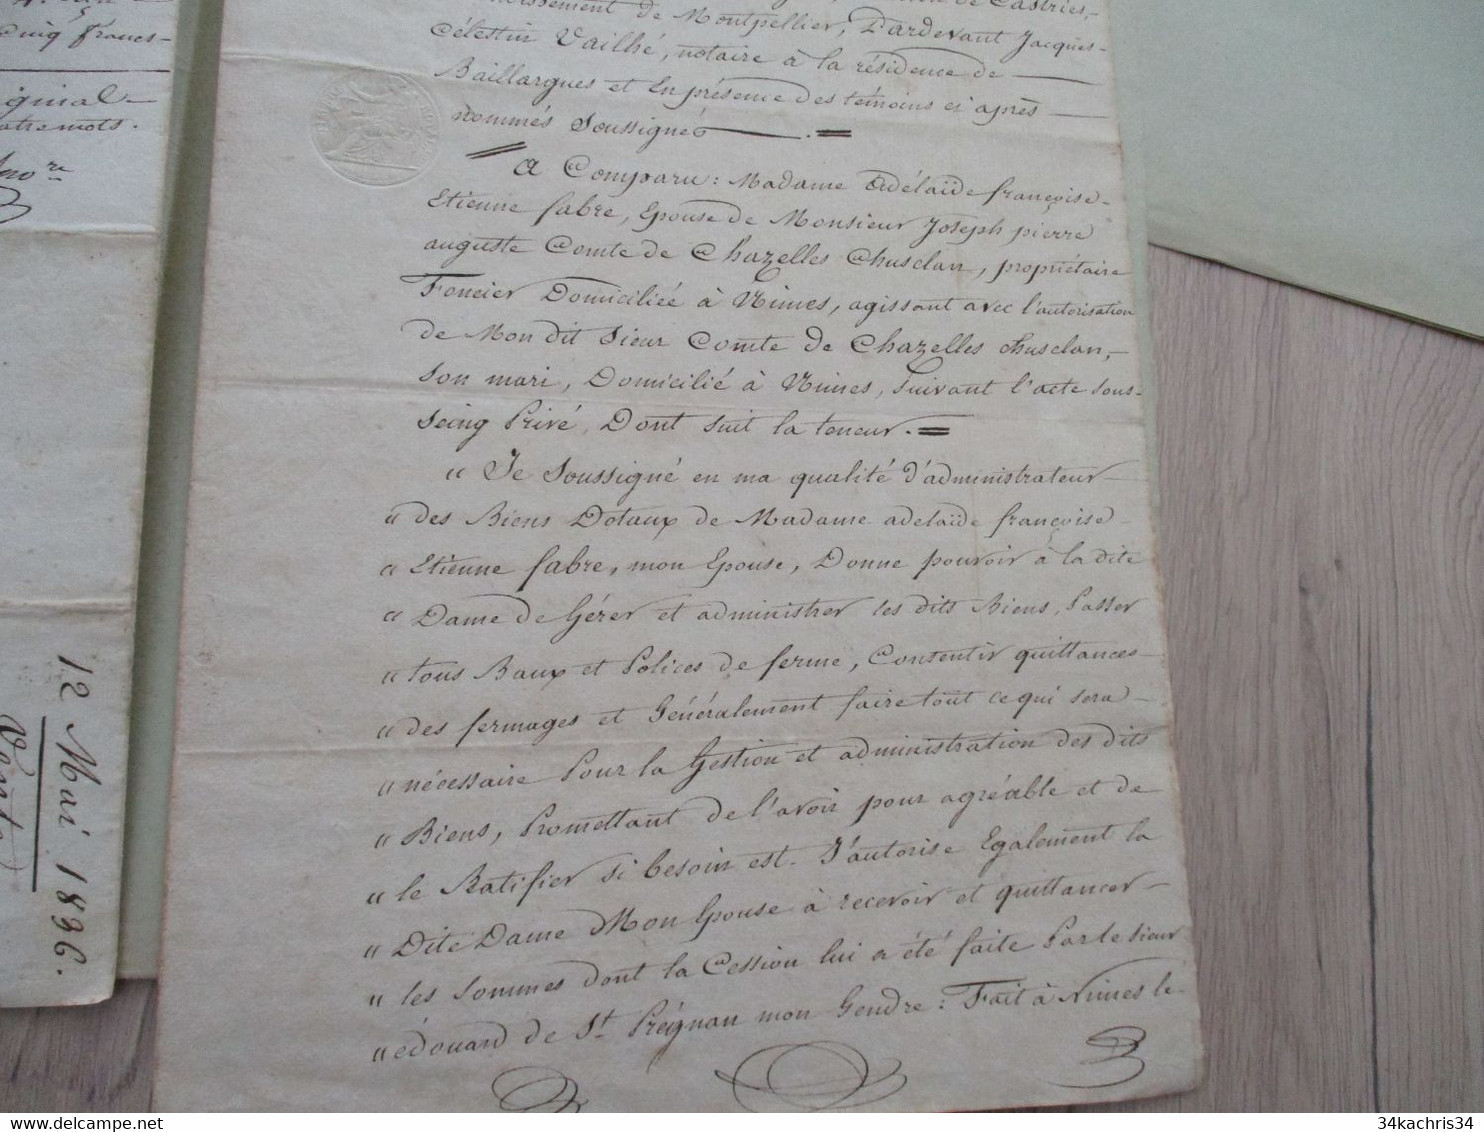 cinq francs
ginal
atre mots.
12 Mai 1896.
Vente
de Castries,
de Montpellier, Pardevant Jacques-
Célestin Vailhé, notaire à la résidence de
Baillargues et en présence des témoins ci après
nommés soussignés
A Comparu : Madame Adélaïde françoise
Etienne fabre, Epouse de Monsieur Joseph pierre
auguste Comte de Chazelles Chusclan, propriétaire
Foncier Domiciliée à Nimes, agissant avec l'autorisation
de Mon dit Sieur Comte de Chazelles Chusclan,
son mari, Domicilié à Nimes, suivant l'acte sous-
seing Privé, Dont suit la teneur.
" Je soussigné en ma qualité d'administrateur
" des Biens Dotaux de Madame adelaïde françoise
" Etienne fabre, mon Epouse, Donne pouvoir à la dite
" Dame de Gérer et administrer les dits Biens, Passer
" tous Baux et Polices de ferme, Consentir quittances
" des fermages et Généralement faire tout ce qui sera
" nécessaire Pour la Gestion et administration des dits
" Biens, Promettant de l'avoir pour agréable et de
" le Ratifier si besoin est. J'autorise Egalement la
" Dite Dame Mon Epouse à recevoir et quittancer
" les sommes dont la Cession lui a été faite Par le sieur
" édouard de St Preignan mon Gendre : Fait à Nimes le
34kachris34
delcampe.net
34kachris34